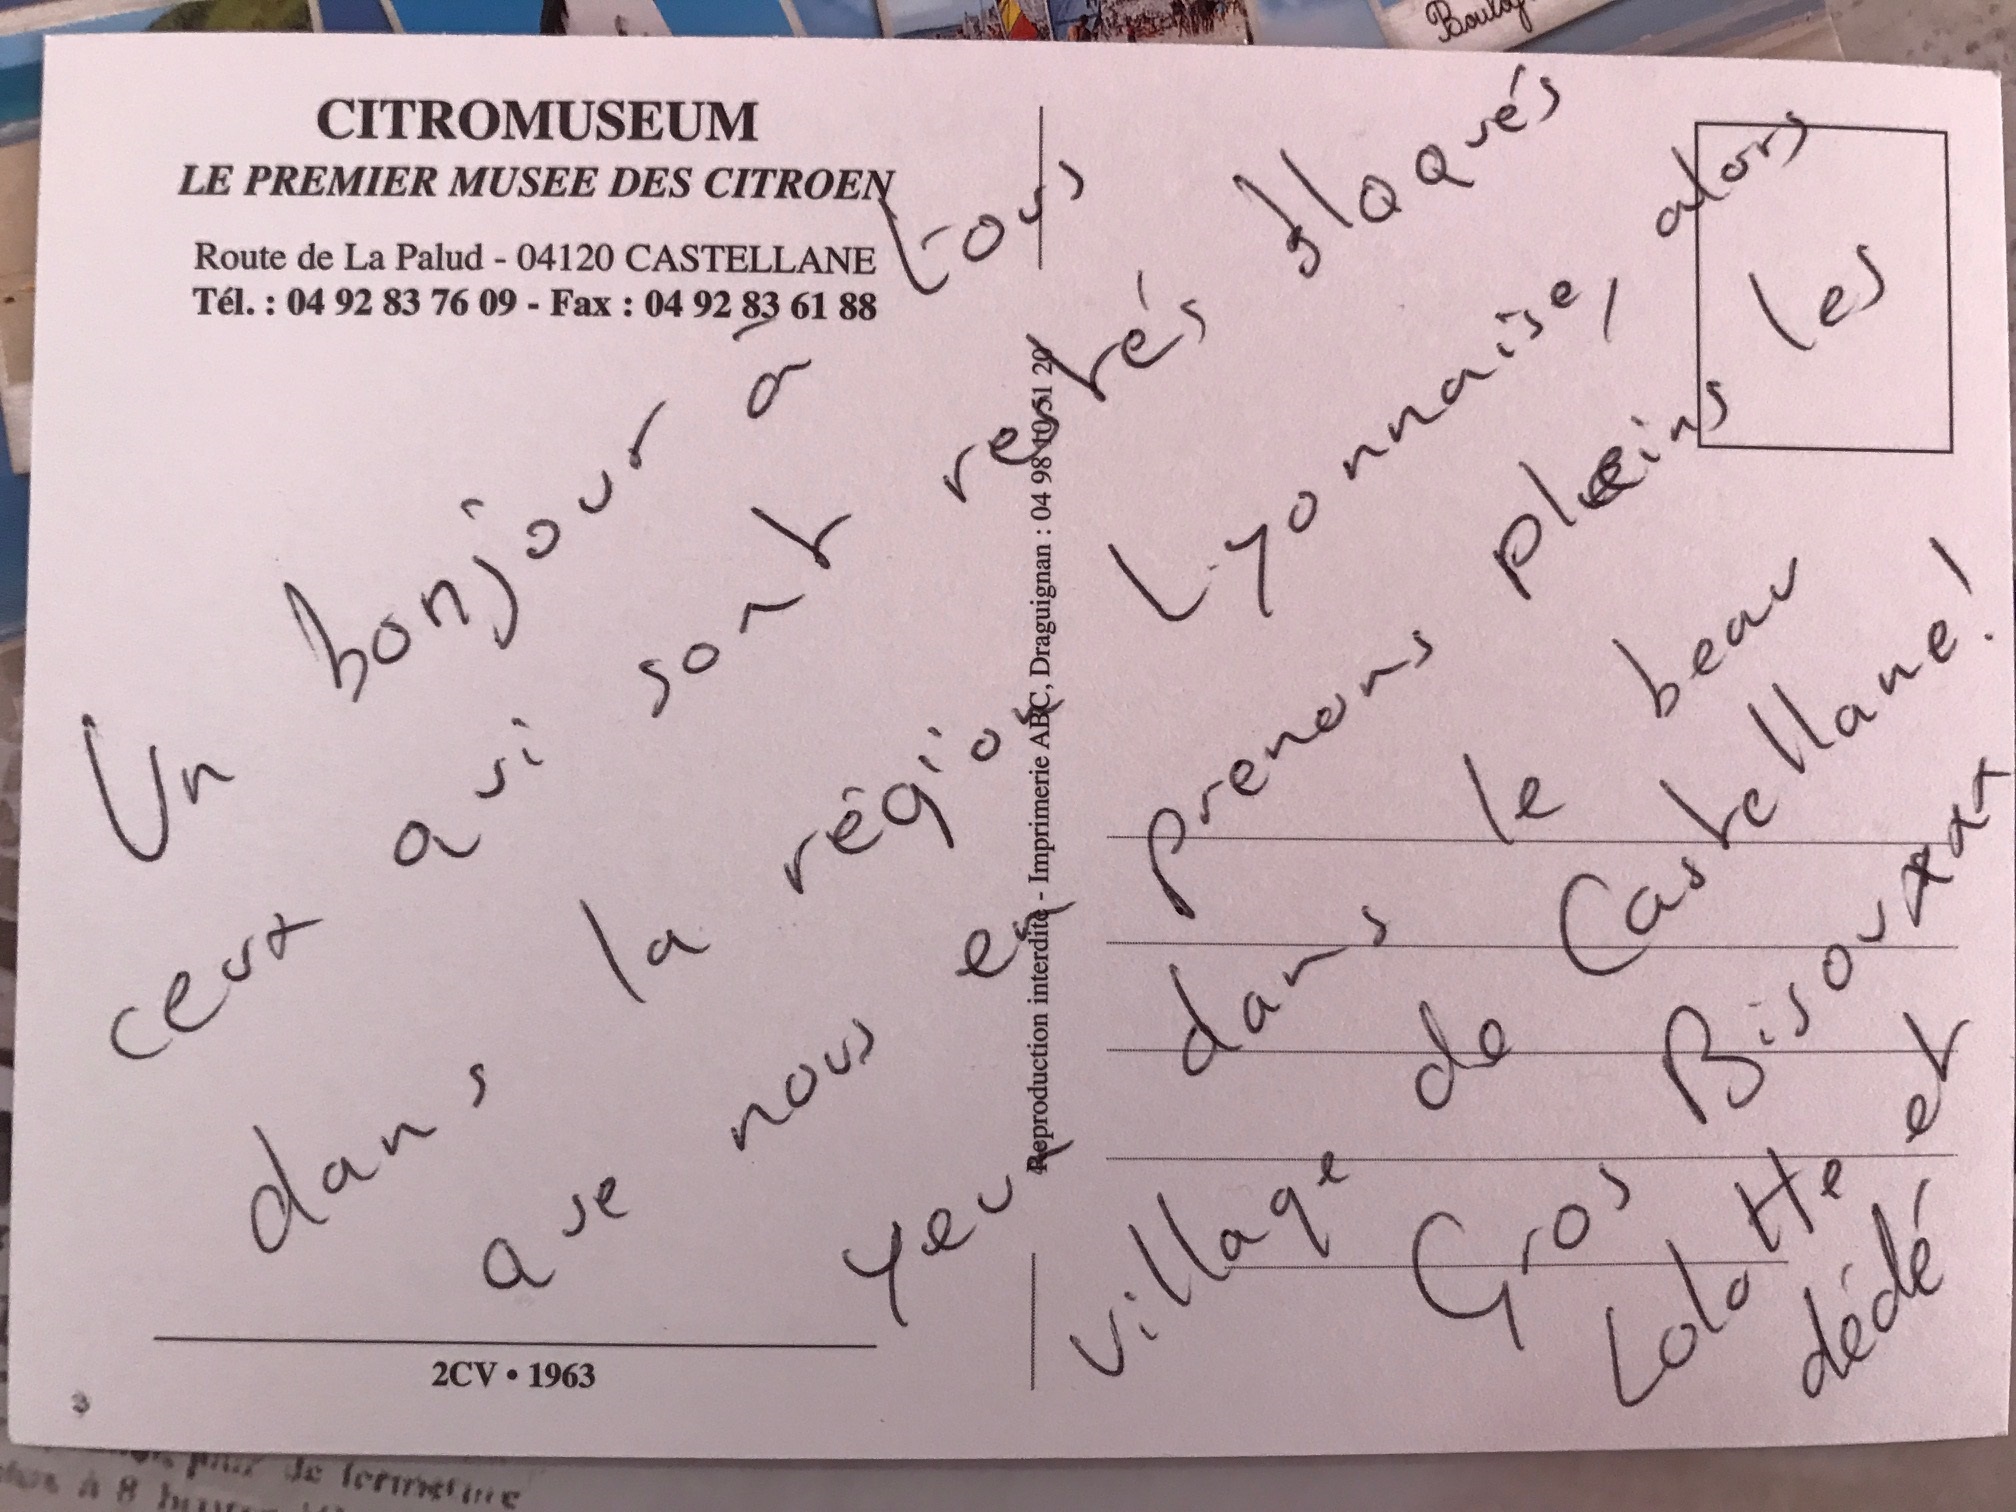 CITROMUSEUM
LE PREMIER MUSEE DES CITROEN
Route de La Palud - 04120 CASTELLANE
Tél. : 04 92 83 76 09 - Fax : 04 92 83 61 88
Un bonjour à tous
ceux qui sont restés bloqués
dans la région Lyonnaise, alors
que nous en prenons pleins les
yeux dans le beau
village de Castellane!
Gros Bisouxxx
Lolotte et
dédé
Reproduction interdite - Imprimerie ABC, Draguignan : 04 98 10 51 20
2CV • 1963
à 8